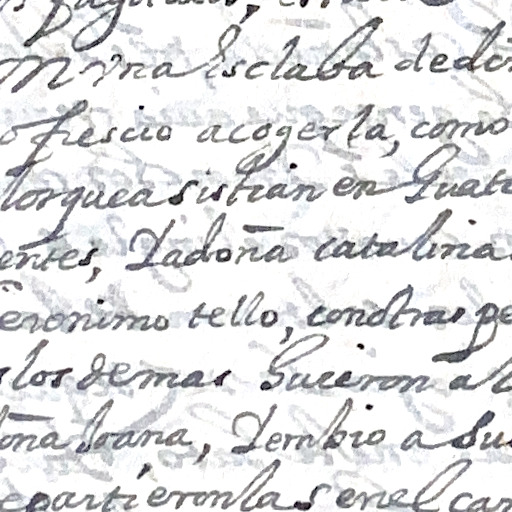 m vna esclaba de dõ
ofrescio acogerla, como
lorque asistian en Guat
entes, Y a doña catalina
eronimo tello, conotras pe
slos demas hucieron al
oña Joana, Y embio a su
epartieronlas enel car